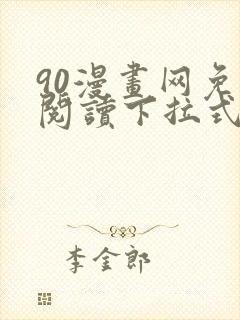 90漫畫网免
閱讀下拉式
李金郎